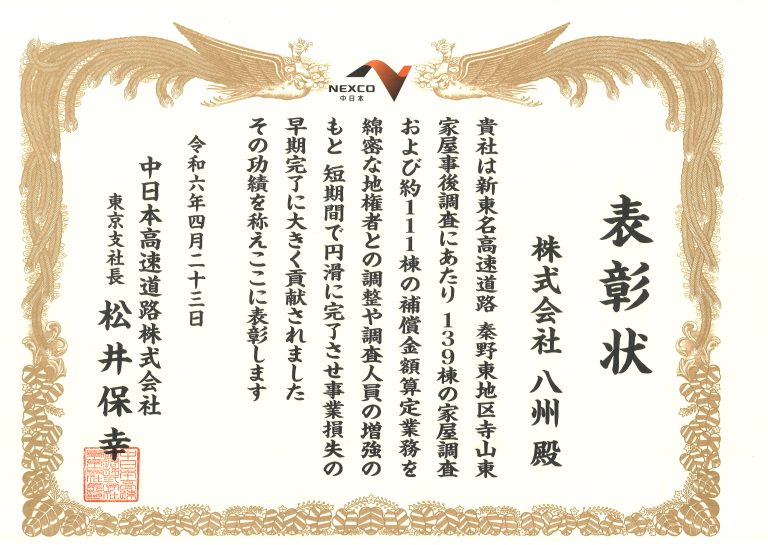 NEXCO
中日本
表彰状
株式会社 八州 殿
貴社は新東名高速道路 秦野東地区寺山東
家屋事後調査にあたり 139棟の家屋調査
および約111棟の補償金額算定業務を
綿密な地権者との調整や調査人員の増強の
もと 短期間で円滑に完了させ事業損失の
早期完了に大きく貢献されました
その功績を称えここに表彰します
令和六年四月二十三日
中日本高速道路株式会社
東京支社長 松井保幸